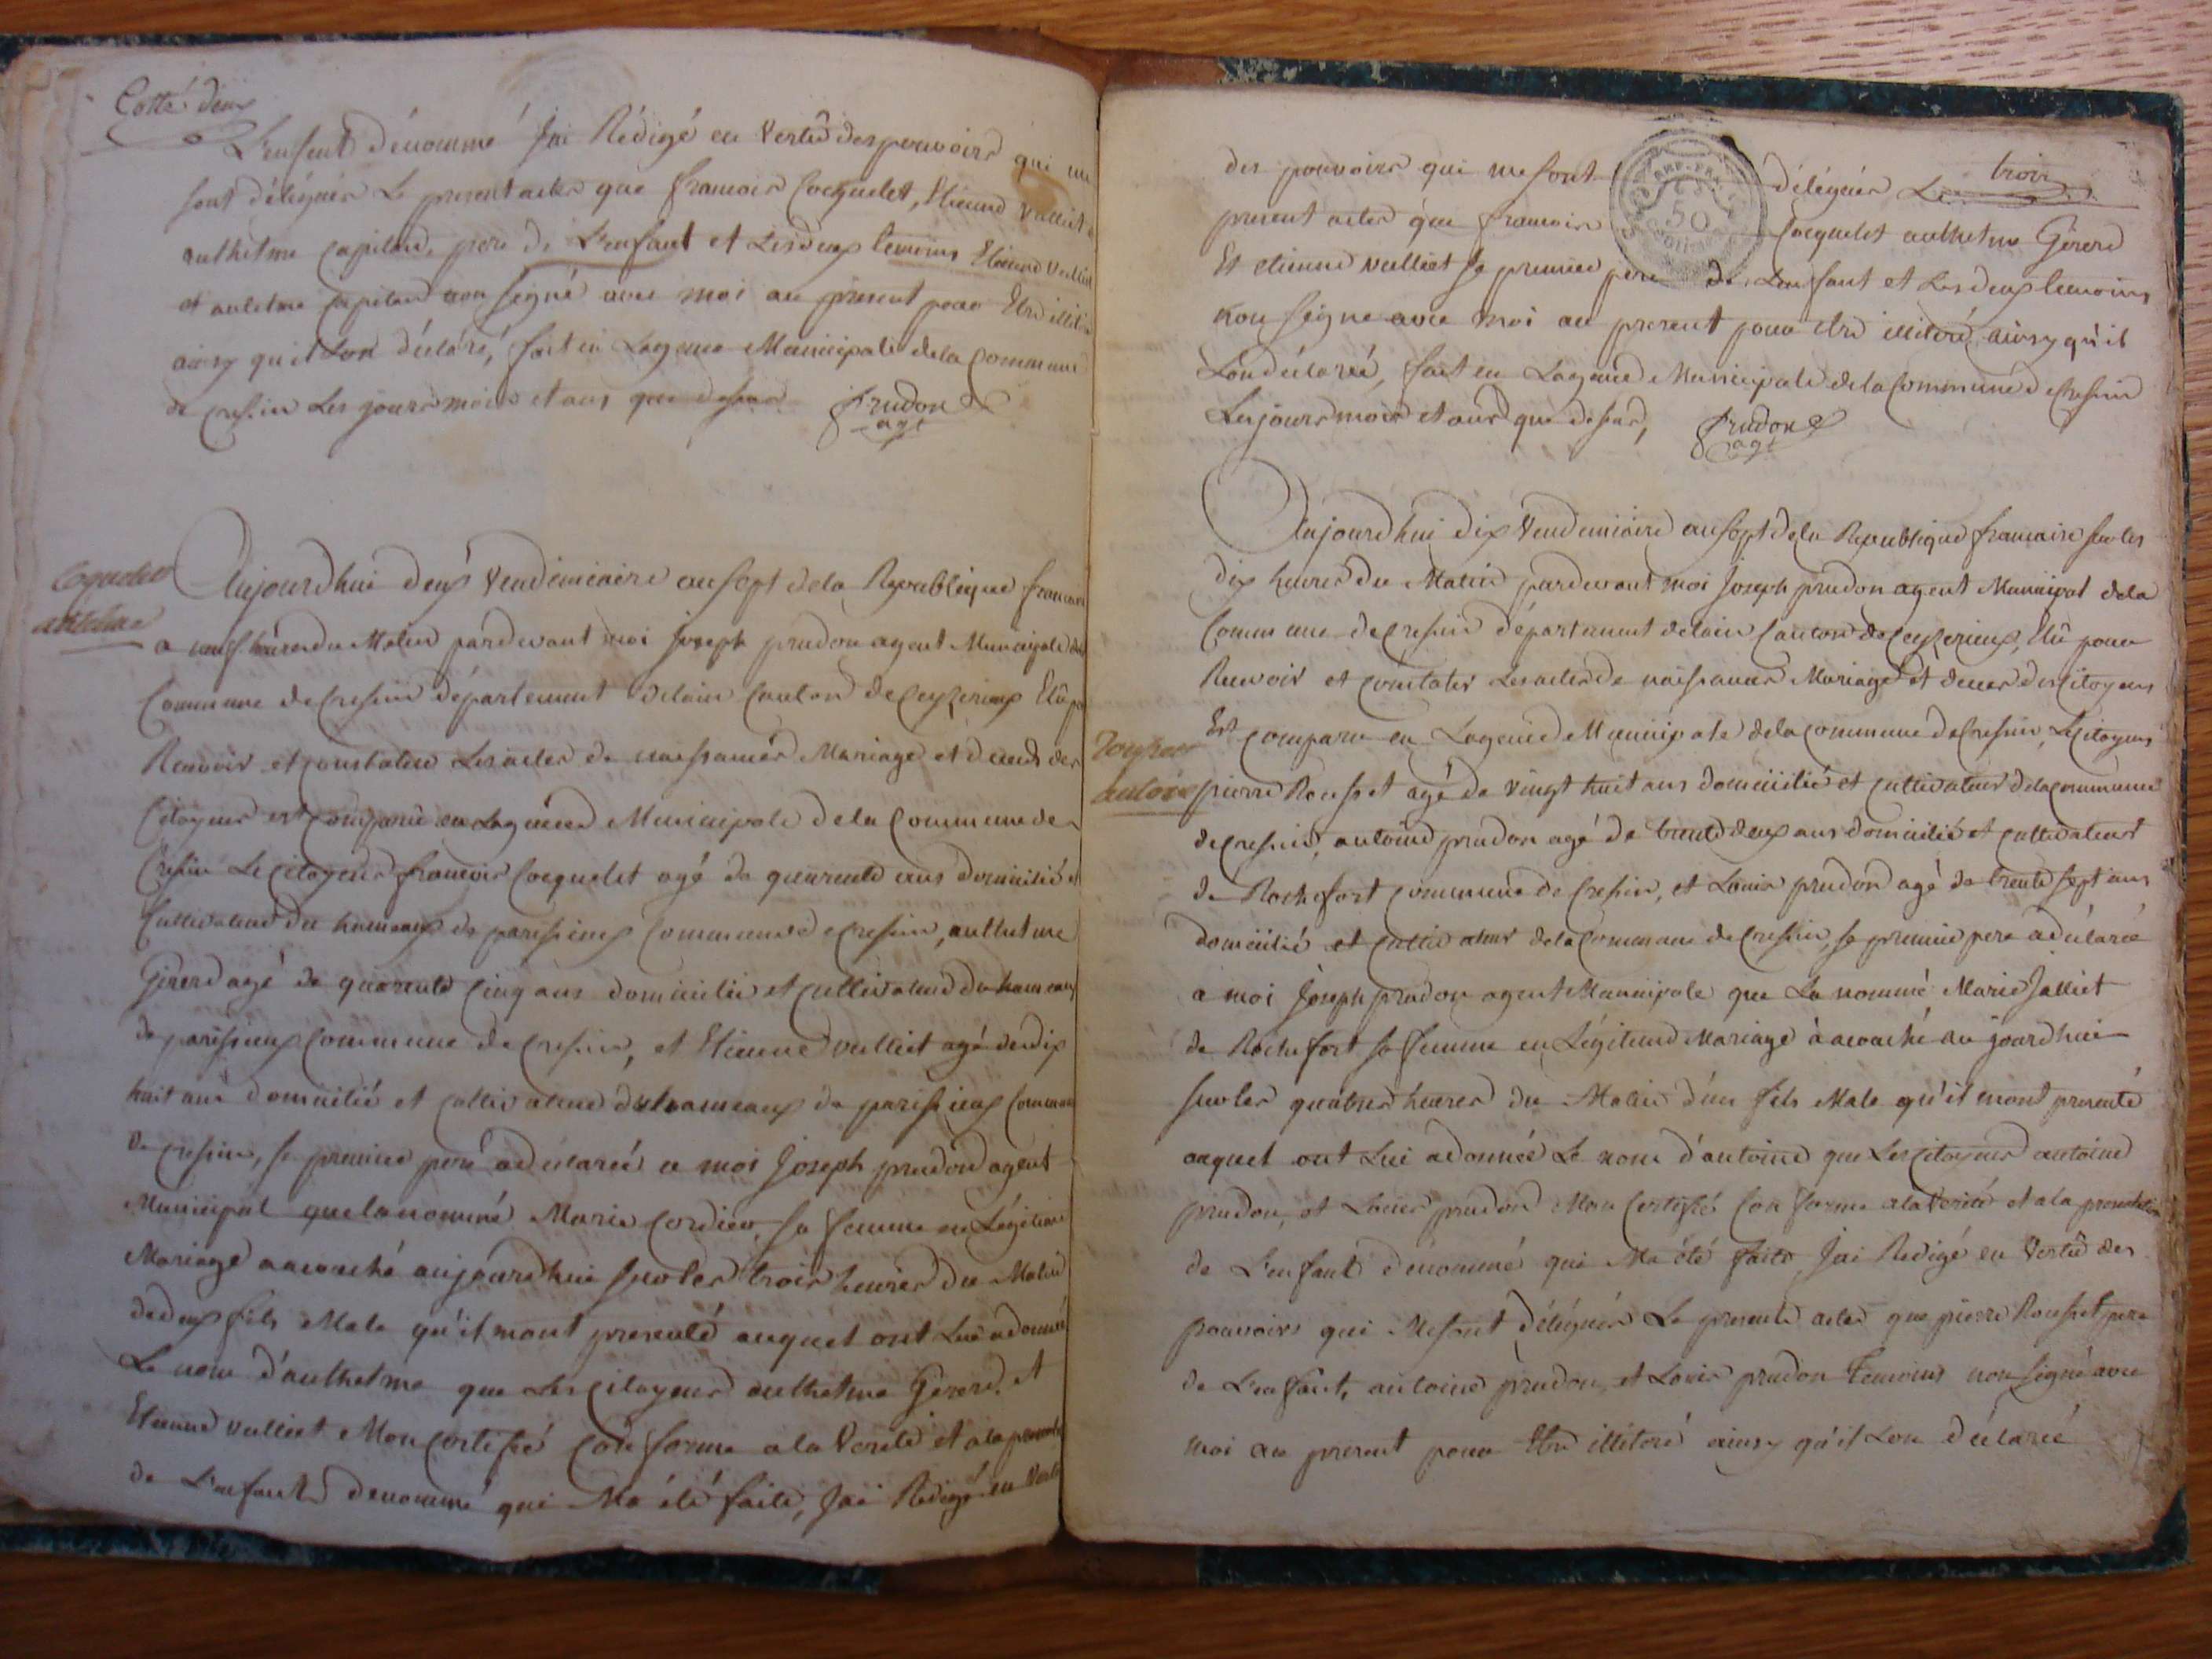 Cotté deux
L'enfent dénommé jai Rédigé en Vertû des pouvoirs qui me
sont délégués Le present acte que francois Cocquelet, Etienne Vulliet
anthelme Capitan, pere de L'enfant et Les deux temoins Etienne Vulliet
et antelme Capitan non signé avec moi au present pour Etre illit
ainsy quil Lon déclaré, fait en Lagence Municipale de la Commune
de Cressin Les jours mois et ans que dessus Prudon
agt
Coquelet
antelme
Aujourdhui deux Vendemiaire an sept de la Republique francaise
a neuf heures du Matin pardevant moi joseph prudon agent Municipale de la
Commune de Cressin département delain Canton de Ceyzerieux Elû po
Recevoir et constater Les actes de naissances Mariage et deces des
Citoyens est comparu en Lagence Municipale de la Commune de
Cressin Le Citoyens francois Cocquelet agé de quarente ans domicilié et
Cultivateur du hameaux de parissieux Commune de Cressin, anthelme
Gérerd agé de quarente cinq ans domicilié et cultivateur du hameaux
de parissieux Commune de Cressin, et Etienne vulliet agé de dix
huit ans domicilié et cultivateur du hameaux de parissieux Commune
de Cressin, se premier pere a déclareé a moi Joseph prudon agent
Municipal que la nommé Marie Cordier, sa femme en Légitime
Mariage a acouché aujourdhui sur les trois heures du Matin
de deux fils Male qu'il mont presenté auquel ont Lui a donné
Le nom d'anthelme que Les citoyens anthelme Gérerd, et
Etienne vulliet Mon certifié conforme a la Verité et a la presente
de L'enfant denommé qui Ma été faite, jai Redigé en Vertû
trois
des pouvoirs qui me sont délégués Le
50
present actes que francois Cocquelet anthelme Gérerd
Et etienne vulliet se premier pere de Lenfant et Les deux temoins
non signe avec moi au present pour etre illitéré ainsy qu'il
Lon déclareé, fait en Lagence Municipale de la Commune de Cressin
Les jours mois et ans que dessus, Prudon
agt
Aujourdhui dix Vendemiaire an sept de la Republique francaise sur les
dix heures du Matin pardevant moi joseph prudon agent Municipal de la
Commune de Cressin département delain Canton de Ceyzerieux, Elû pour
Recevoir et constater Les actes de naissances Mariage et deces des Citoyens
Est comparu en Lagence Municipale de la commune de Cressin, Le Citoyens
antoine
pierre Rousset agé de vingt huit ans domicilié et cultivateur de la commune
de Cressin, antoine prudon agé de trente deux ans domicilié et cultivateur
de Rochefort commune de Cressin, et Louis prudon agé de trente sept ans
domicilié et cultivateur de la Commune de Cressin, se premier pere a déclareé
a moi Joseph prudon agent Municipale que La nommé Marie Jalliet
de Rochefort sa femme en Légitime Mariage à acouché aujourdhui
sur les quatres heures du Matin d'un fils Male qu'il mont presenté
auquel ont Lui a donneé Le nom d'antoine que Les citoyens antoine
prudon, et Louis prudon Mon certifié conforme a la Verité et a la presentation
de L'enfant dénommé qui Ma été faite, Jai Redigé en Vertû des
pouvoirs qui Me sont délégués Le presente actes que pierre Rousset pere
de L'enfant, antoine prudon, et Louis prudon Temoins non signé avec
moi au present pour Etre illitéré ainsy qu'il Lon déclareé